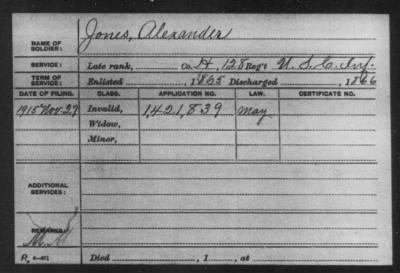 NAME OF SOLDIER: Jones, Alexander
SERVICE: Late rank, Co. H, 128 Reg't U. S. C. Inf.
TERM OF SERVICE: Enlisted , 1865 Discharged , 1866
DATE OF FILING. CLASS. APPLICATION NO. LAW. CERTIFICATE NO.
1915 Nov. 27 Invalid, 1,421,839 May
Widow,
Minor,
ADDITIONAL SERVICES:
REMARKS:
Died , 1 , at